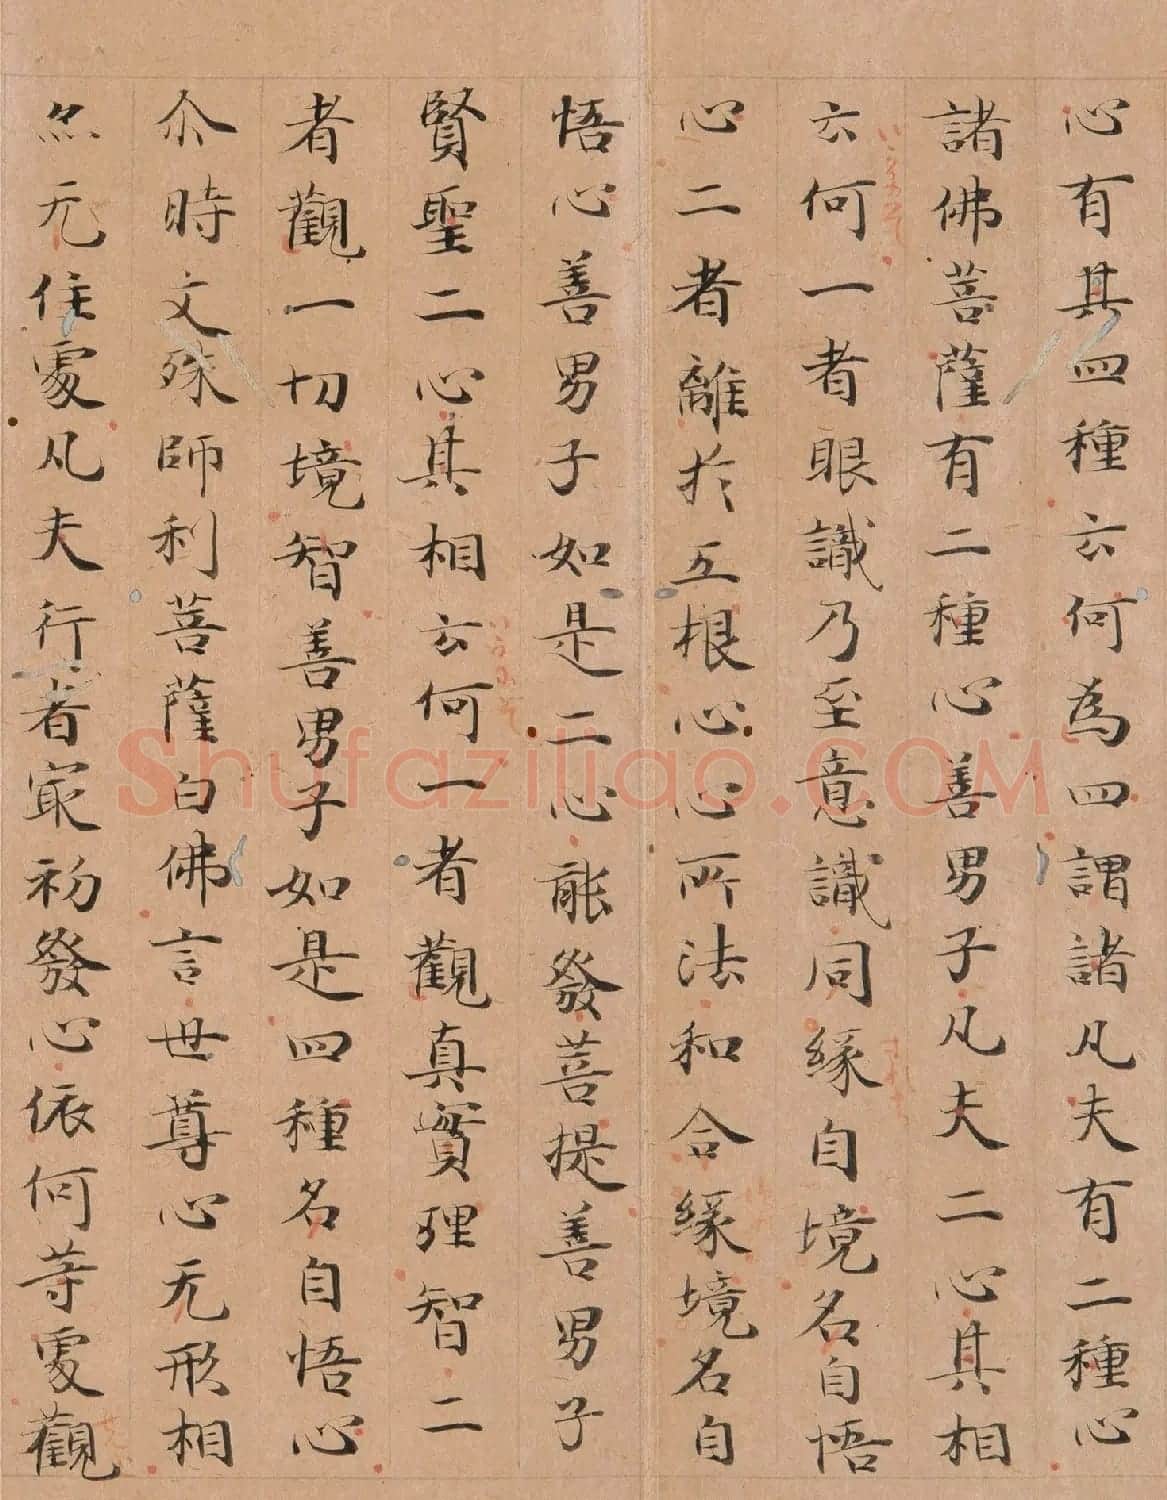 心有其四種云何為四謂諸凡夫有二種心
諸佛菩薩有二種心善男子凡夫二心其相
云何一者眼識乃至意識同緣自境名自悟
心二者離於五根心心所法和合緣境名自
悟心善男子如是二心能發菩提善男子
賢聖二心其相云何一者觀真實理智二
者觀一切境智善男子如是四種名自悟心
尒時文殊師利菩薩白佛言世尊心无形相
亦无住處凡夫行者冣初發心依何等處觀
Shufaziliao.COM